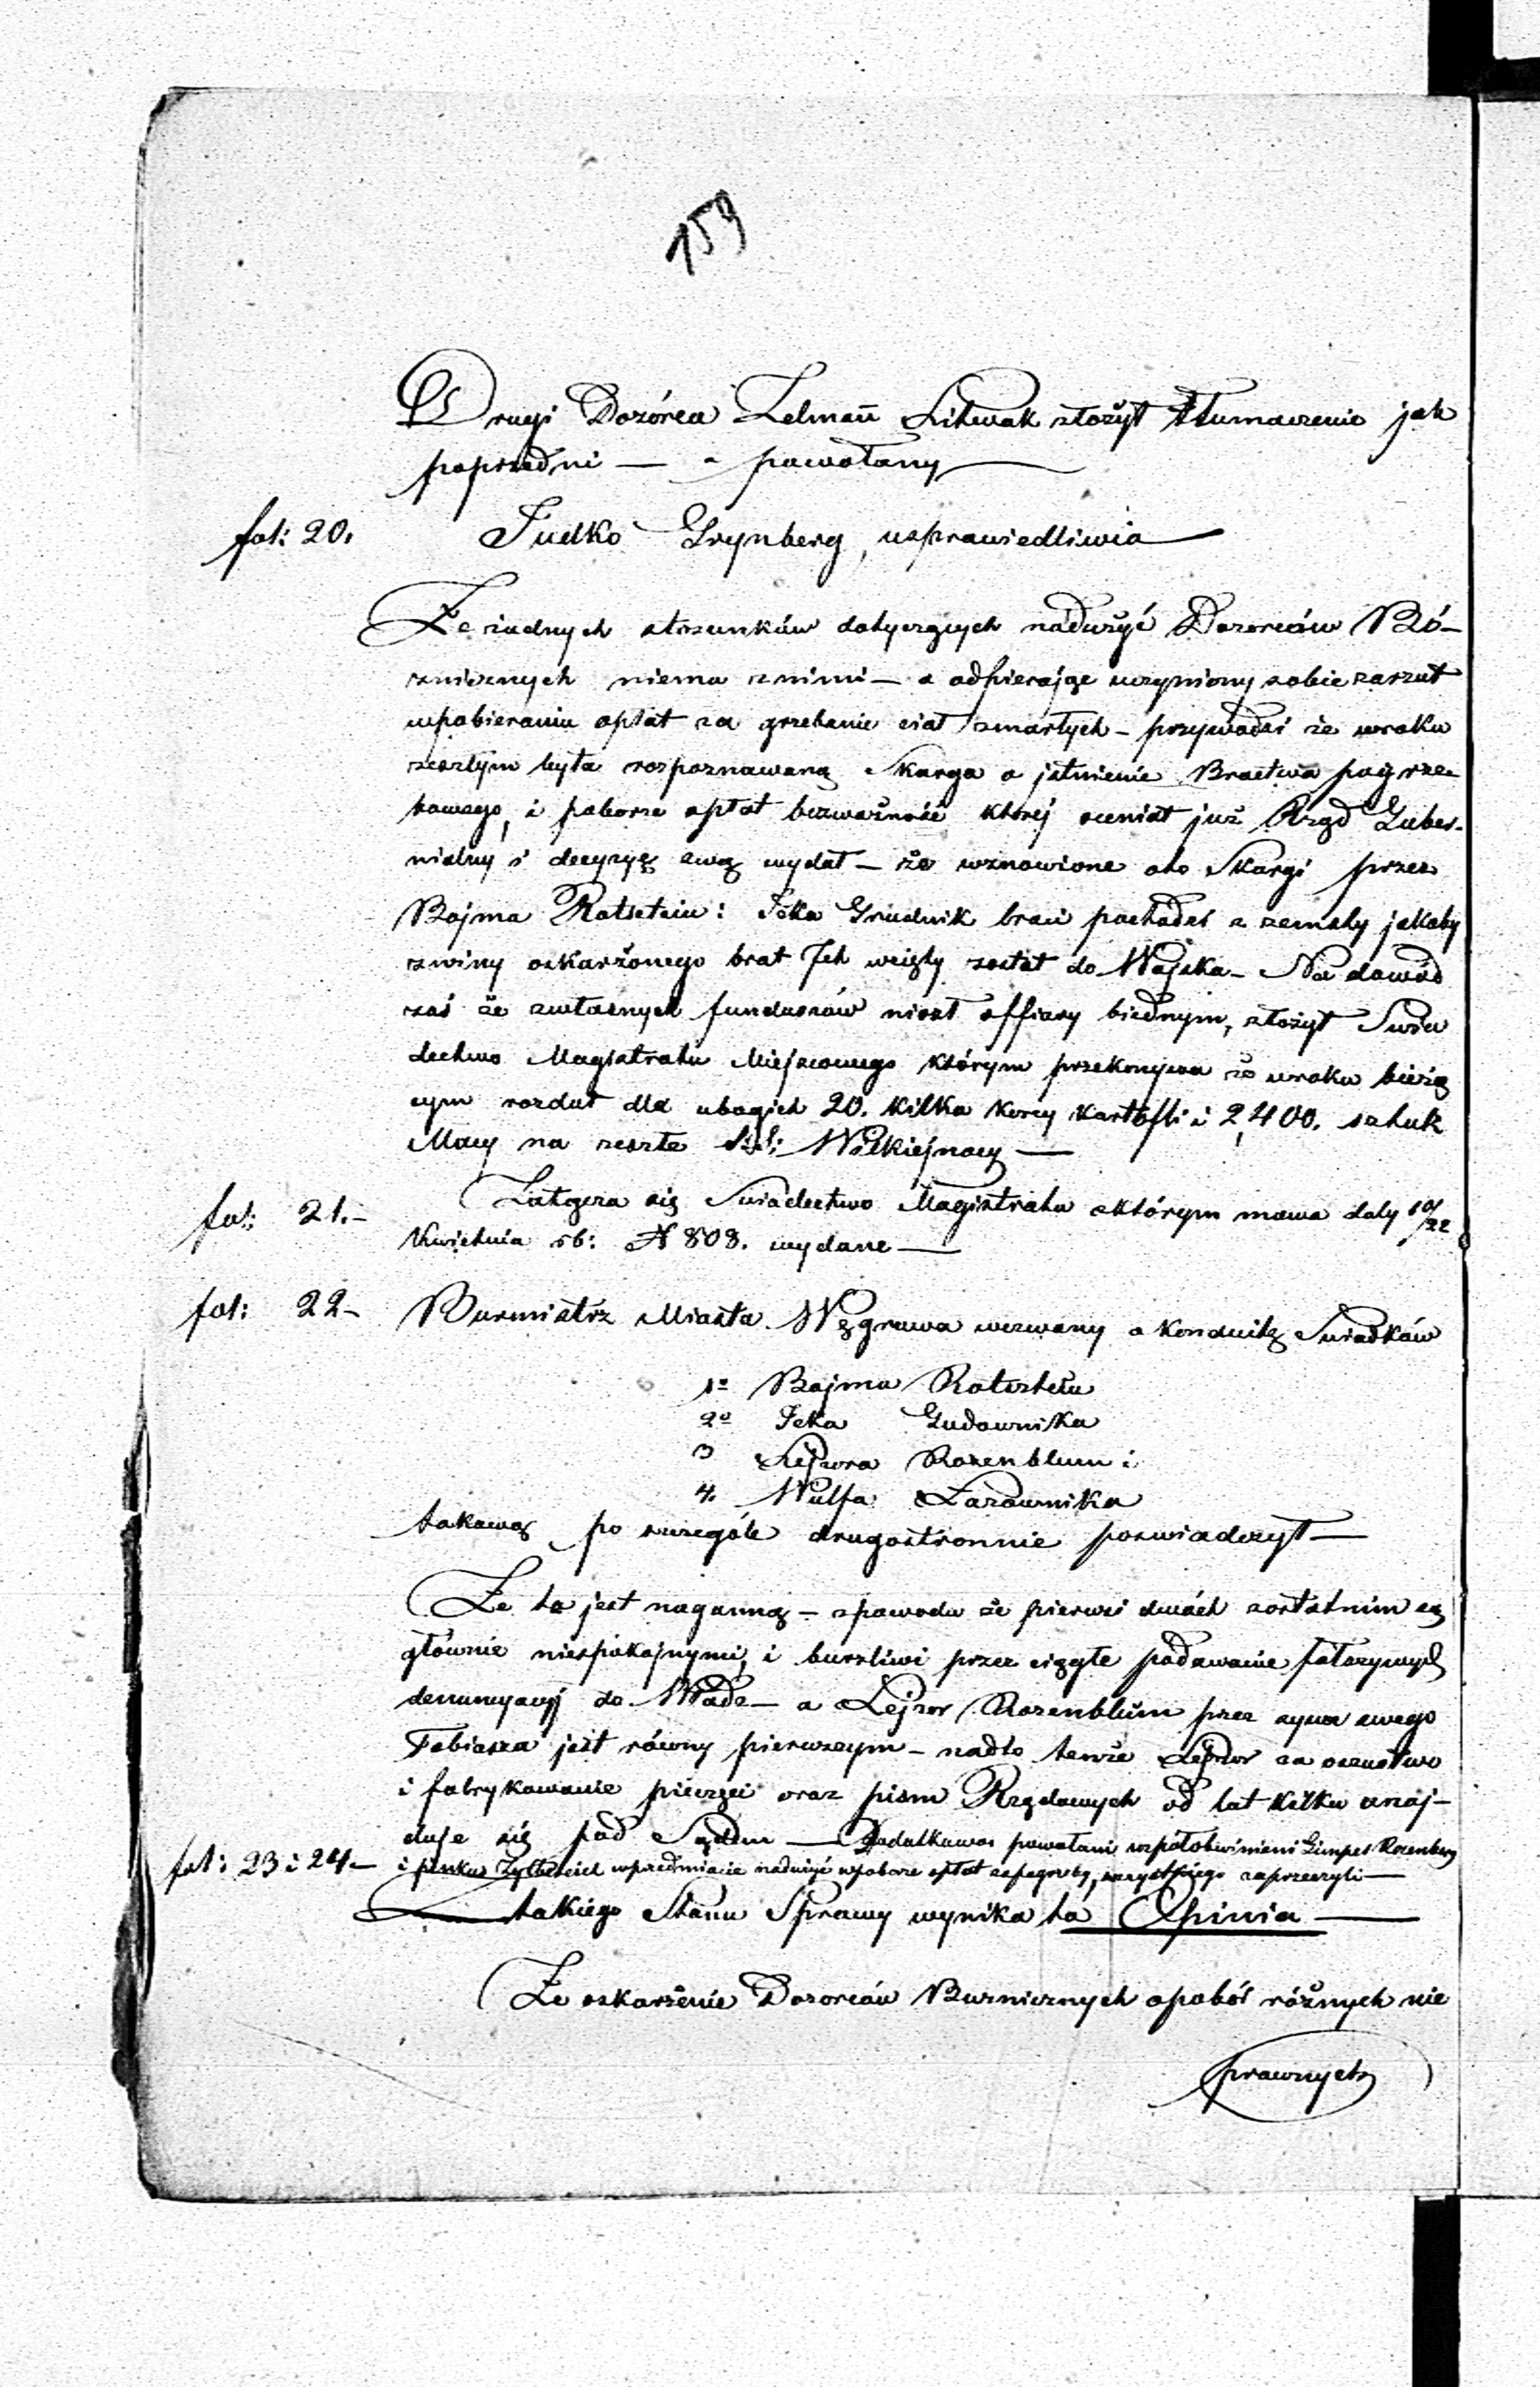 159
Drugi Dozórca Zelman Litwak złożył tłumaczenie jak
poprzedni — a powołany —
fol: 20. Judko Grynberg, usprawiedliwia —
Że żadnych stosunków dotyczących nadużyć Dozorców Bó-
znicznych niema z nimi — a odpierając uczyniony sobie zarzut
wpobieraniu opłat za grzebanie ciał zmarłych — przywodzi że wroku
zeszłym była rozpoznawaną Skarga o istnienie Bractwa pogrze-
bowego, i poborze opłat bezważność której ocenił już Rząd Guber-
nialny i decyzyę swą wydał — że wznowione oto Skargi przez
Bajma Rotsztein i Icka Grudnik braci pochodzi z zemsty jakoby
zwiny oskarżonego brat Ich wzięty został do Wojska — Na dowód
zaś że zwłasnych funduszów niosł offiary biednym, złożył Swia
dectwo Magistratu Miejscowego którym przekonywa że wroku bieżą
cym rozdał dla ubogich 20. kilka korcy kartofli i 2,400. sztuk
Macy na zeszłe Św: Wielkiejnocy —
fol: 21. — Załącza się Swiadectwo Magistratu októrym mowa daty 10/22
Kwietnia rb: N 808. wydane —
fol: 22 — Burmistrz Miasta Węgrowa wezwany o konduitę Swiadków
1o Bajma Rotsztein
2o Icka Gudownika
3 Lejzora Rozenblum i
4. Wulfa Zarównika
takową po szczególe drugostronnie poswiadczył —
Że ta jest naganną — zpowodu że pierwsi dwóch zostatnim są
głównie niespokojnymi, i burzliwi przez ciągłe podawanie fałszywych
denuncyacyj do Władz — a Lejzor Rozenblum przez syna swego
Tobiasza jest równy pierwszym — nadto tenże Lejzor za oszustwo
i fabrykowanie pieczęci oraz pism Rządowych od lat kilku znaj-
duje się pod Sądem — Dodatkowo powołani współobwinieni Gimpel Rozenberg
fol: 23 i 24 — i Pinkus Zylberstein wprzedmiocie nadużyć wpoborze opłat zapogrzeby, wszystkiego zaprzeczyli —
Z takiego Stanu Sprawy wynika ta Opinia —
Że oskarżenie Dozorców Buznicznych opobór różnych nie
prawnych